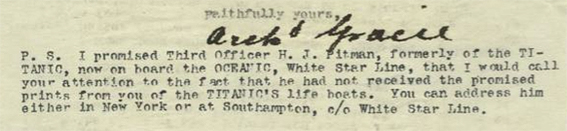 faithfully yours,
Archd Gracie
P. S. I promised Third Officer H. J. Pitman, formerly of the TI-
TANIC, now on board the OCEANIC, White Star Line, that I would call
your attention to the fact that he had not received the promised
prints from you of the TITANIC'S life boats. You can address him
either in New York or at Southampton, c/o White Star Line.